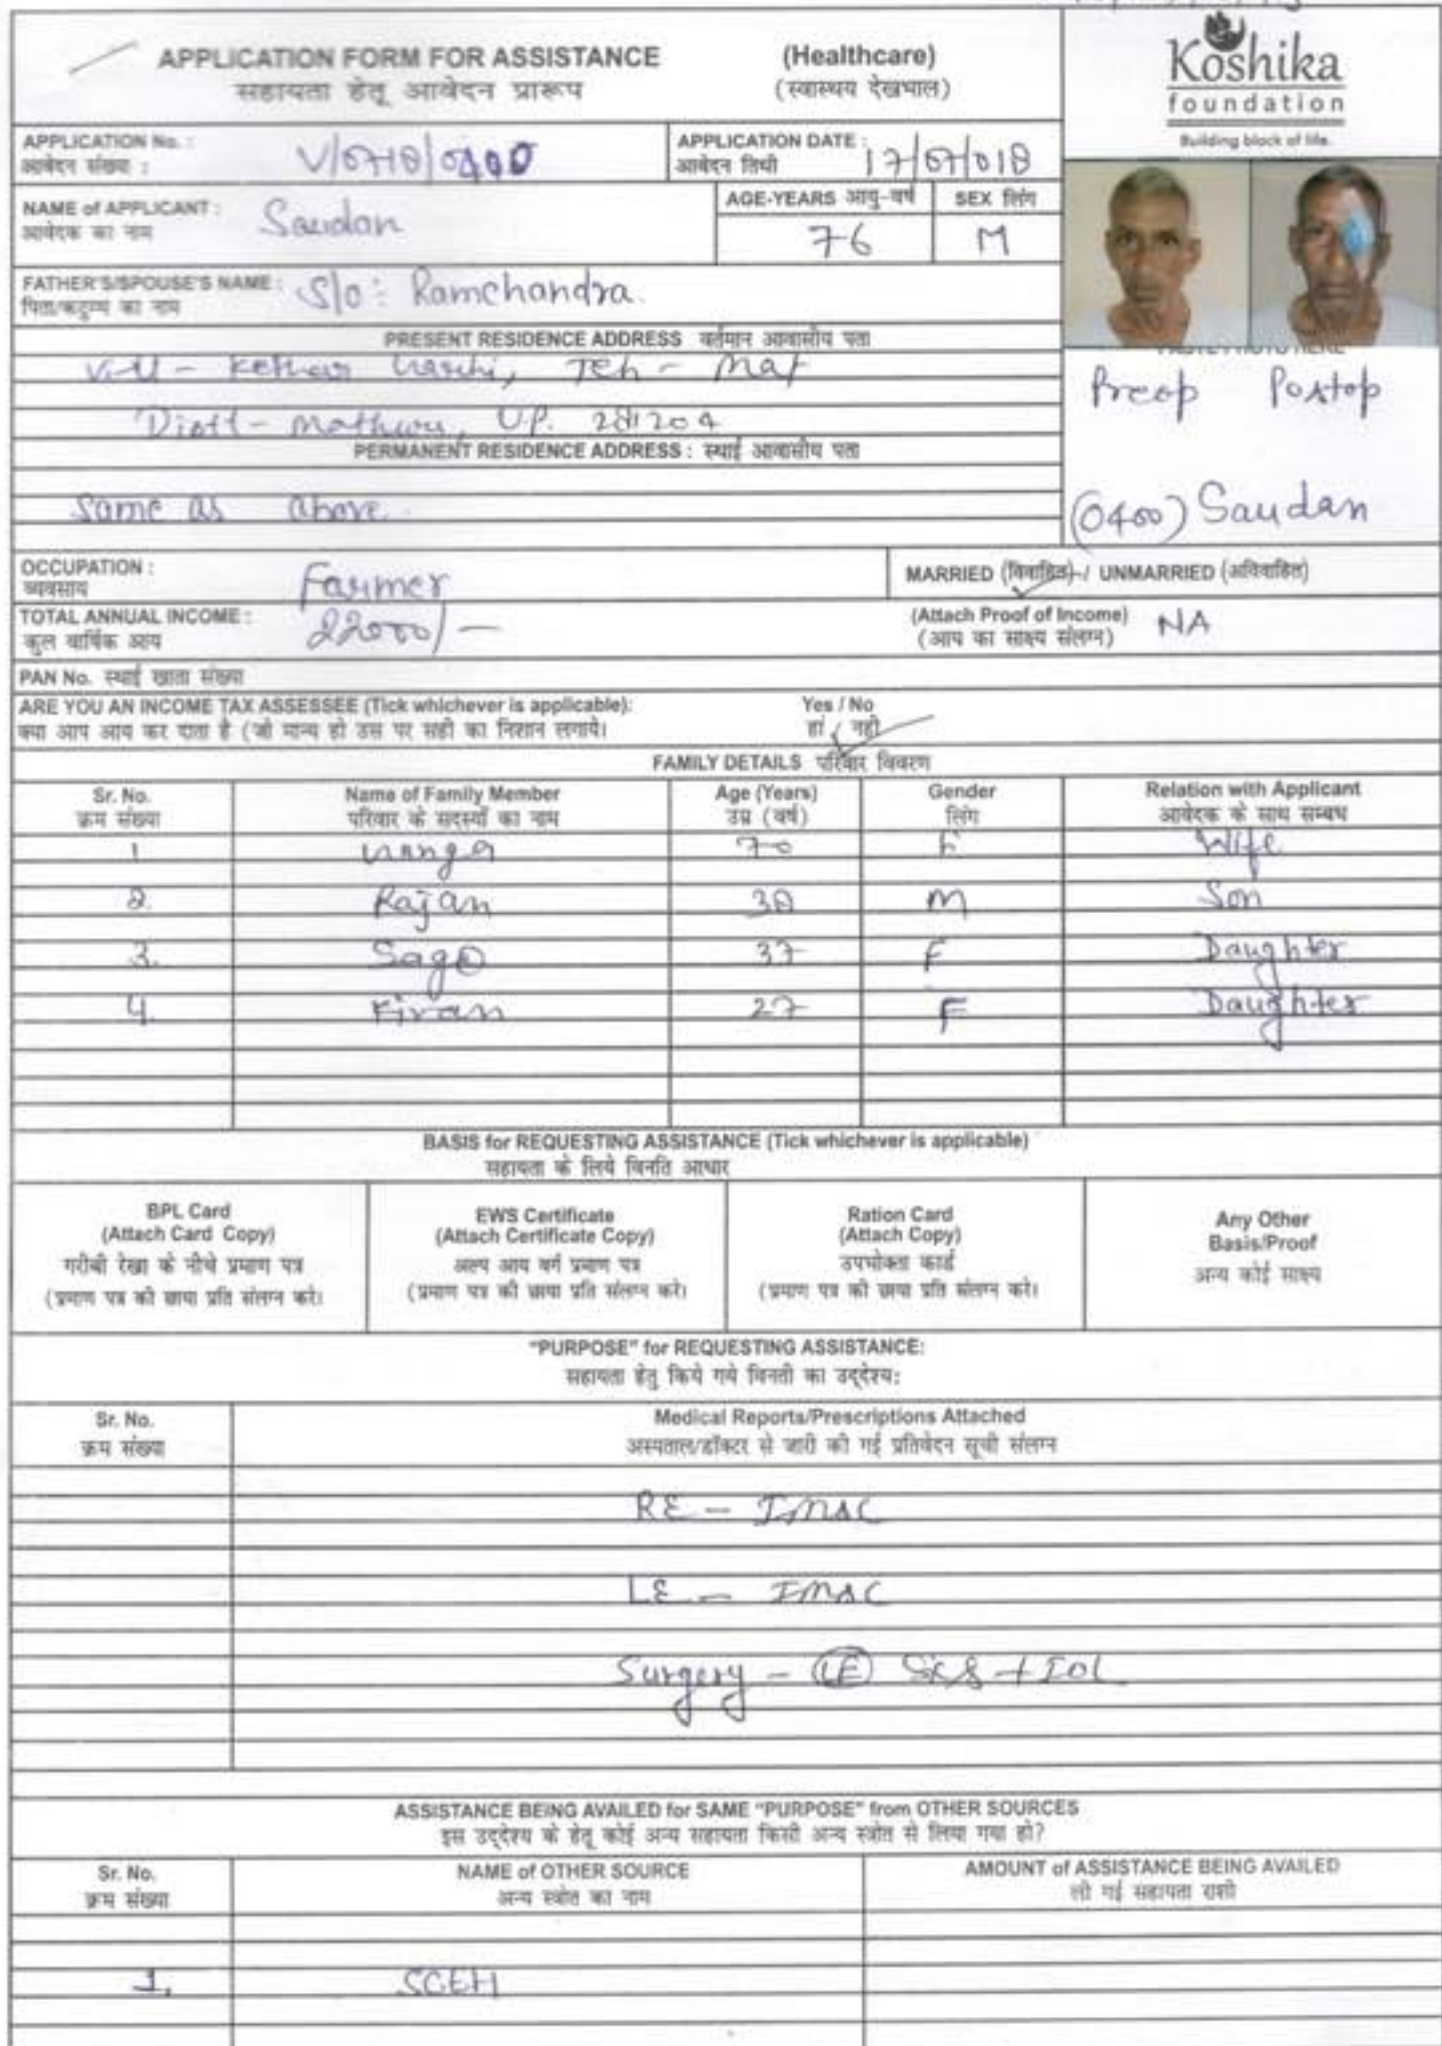 APPLICATION FORM FOR ASSISTANCE (Healthcare)
सहायता हेतू आवेदन प्रारूप (स्वास्थय देखभाल)
Koshika
foundation
Building block of life.
APPLICATION No. :
आवेदन संख्या : V/0718/0400
APPLICATION DATE :
आवेदन तिथी 17/07/018
NAME of APPLICANT : Saudan
आवेदक का नाम
AGE-YEARS आयु-वर्ष SEX लिंग
76 M
FATHER'S/SPOUSE'S NAME : S/o: Ramchandra.
पिता/कटुम्ब का नाम
PRESENT RESIDENCE ADDRESS वर्तमान आवासीय पता
Vill - Teh - Mat
Distt - Mathura, U.P. 281204
Preop Postop
PERMANENT RESIDENCE ADDRESS : स्थाई आवासीय पता
Same as above.
(0400) Saudan
OCCUPATION : Farmer
व्यवसाय
MARRIED (विवाहित) / UNMARRIED (अविवाहित)
TOTAL ANNUAL INCOME : 22000/-
कुल वार्षिक आय
(Attach Proof of Income) NA
(आय का साक्ष्य संलग्न)
PAN No. स्थाई खाता संख्या
ARE YOU AN INCOME TAX ASSESSEE (Tick whichever is applicable): Yes / No
क्या आप आय कर दाता है (जो मान्य हो उस पर सही का निशान लगाये। हां / नही
FAMILY DETAILS परिवार विवरण
Sr. No. Name of Family Member Age (Years) Gender Relation with Applicant
क्रम संख्या परिवार के सदस्यों का नाम उम्र (वर्ष) लिंग आवेदक के साथ सम्बध
1 70 F Wife
2. Rajan 38 M Son
3. Sago 37 F Daughter
4. Kiran 27 F Daughter
BASIS for REQUESTING ASSISTANCE (Tick whichever is applicable)
सहायता के लिये विनति आधार
BPL Card
(Attach Card Copy)
गरीबी रेखा के नीचे प्रमाण पत्र
(प्रमाण पत्र की छाया प्रति संलग्न करे।
EWS Certificate
(Attach Certificate Copy)
अल्प आय वर्ग प्रमाण पत्र
(प्रमाण पत्र की छाया प्रति संलग्न करे।
Ration Card
(Attach Copy)
उपभोक्ता कार्ड
(प्रमाण पत्र की छाया प्रति संलग्न करे।
Any Other
Basis/Proof
अन्य कोई साक्ष्य
"PURPOSE" for REQUESTING ASSISTANCE:
सहायता हेतु किये गये विनती का उद्देश्य:
Sr. No. Medical Reports/Prescriptions Attached
क्रम संख्या अस्पताल/डॉक्टर से जारी की गई प्रतिवेदन सूची संलग्न
RE - IMSC
LE - IMSC
Surgery - (LE) SICS + IOL
ASSISTANCE BEING AVAILED for SAME "PURPOSE" from OTHER SOURCES
इस उद्देश्य के हेतू कोई अन्य सहायता किसी अन्य स्त्रोत से लिया गया हो?
Sr. No. NAME of OTHER SOURCE AMOUNT of ASSISTANCE BEING AVAILED
क्रम संख्या अन्य स्त्रोत का नाम ली गई सहायता राशी
1. SCEH